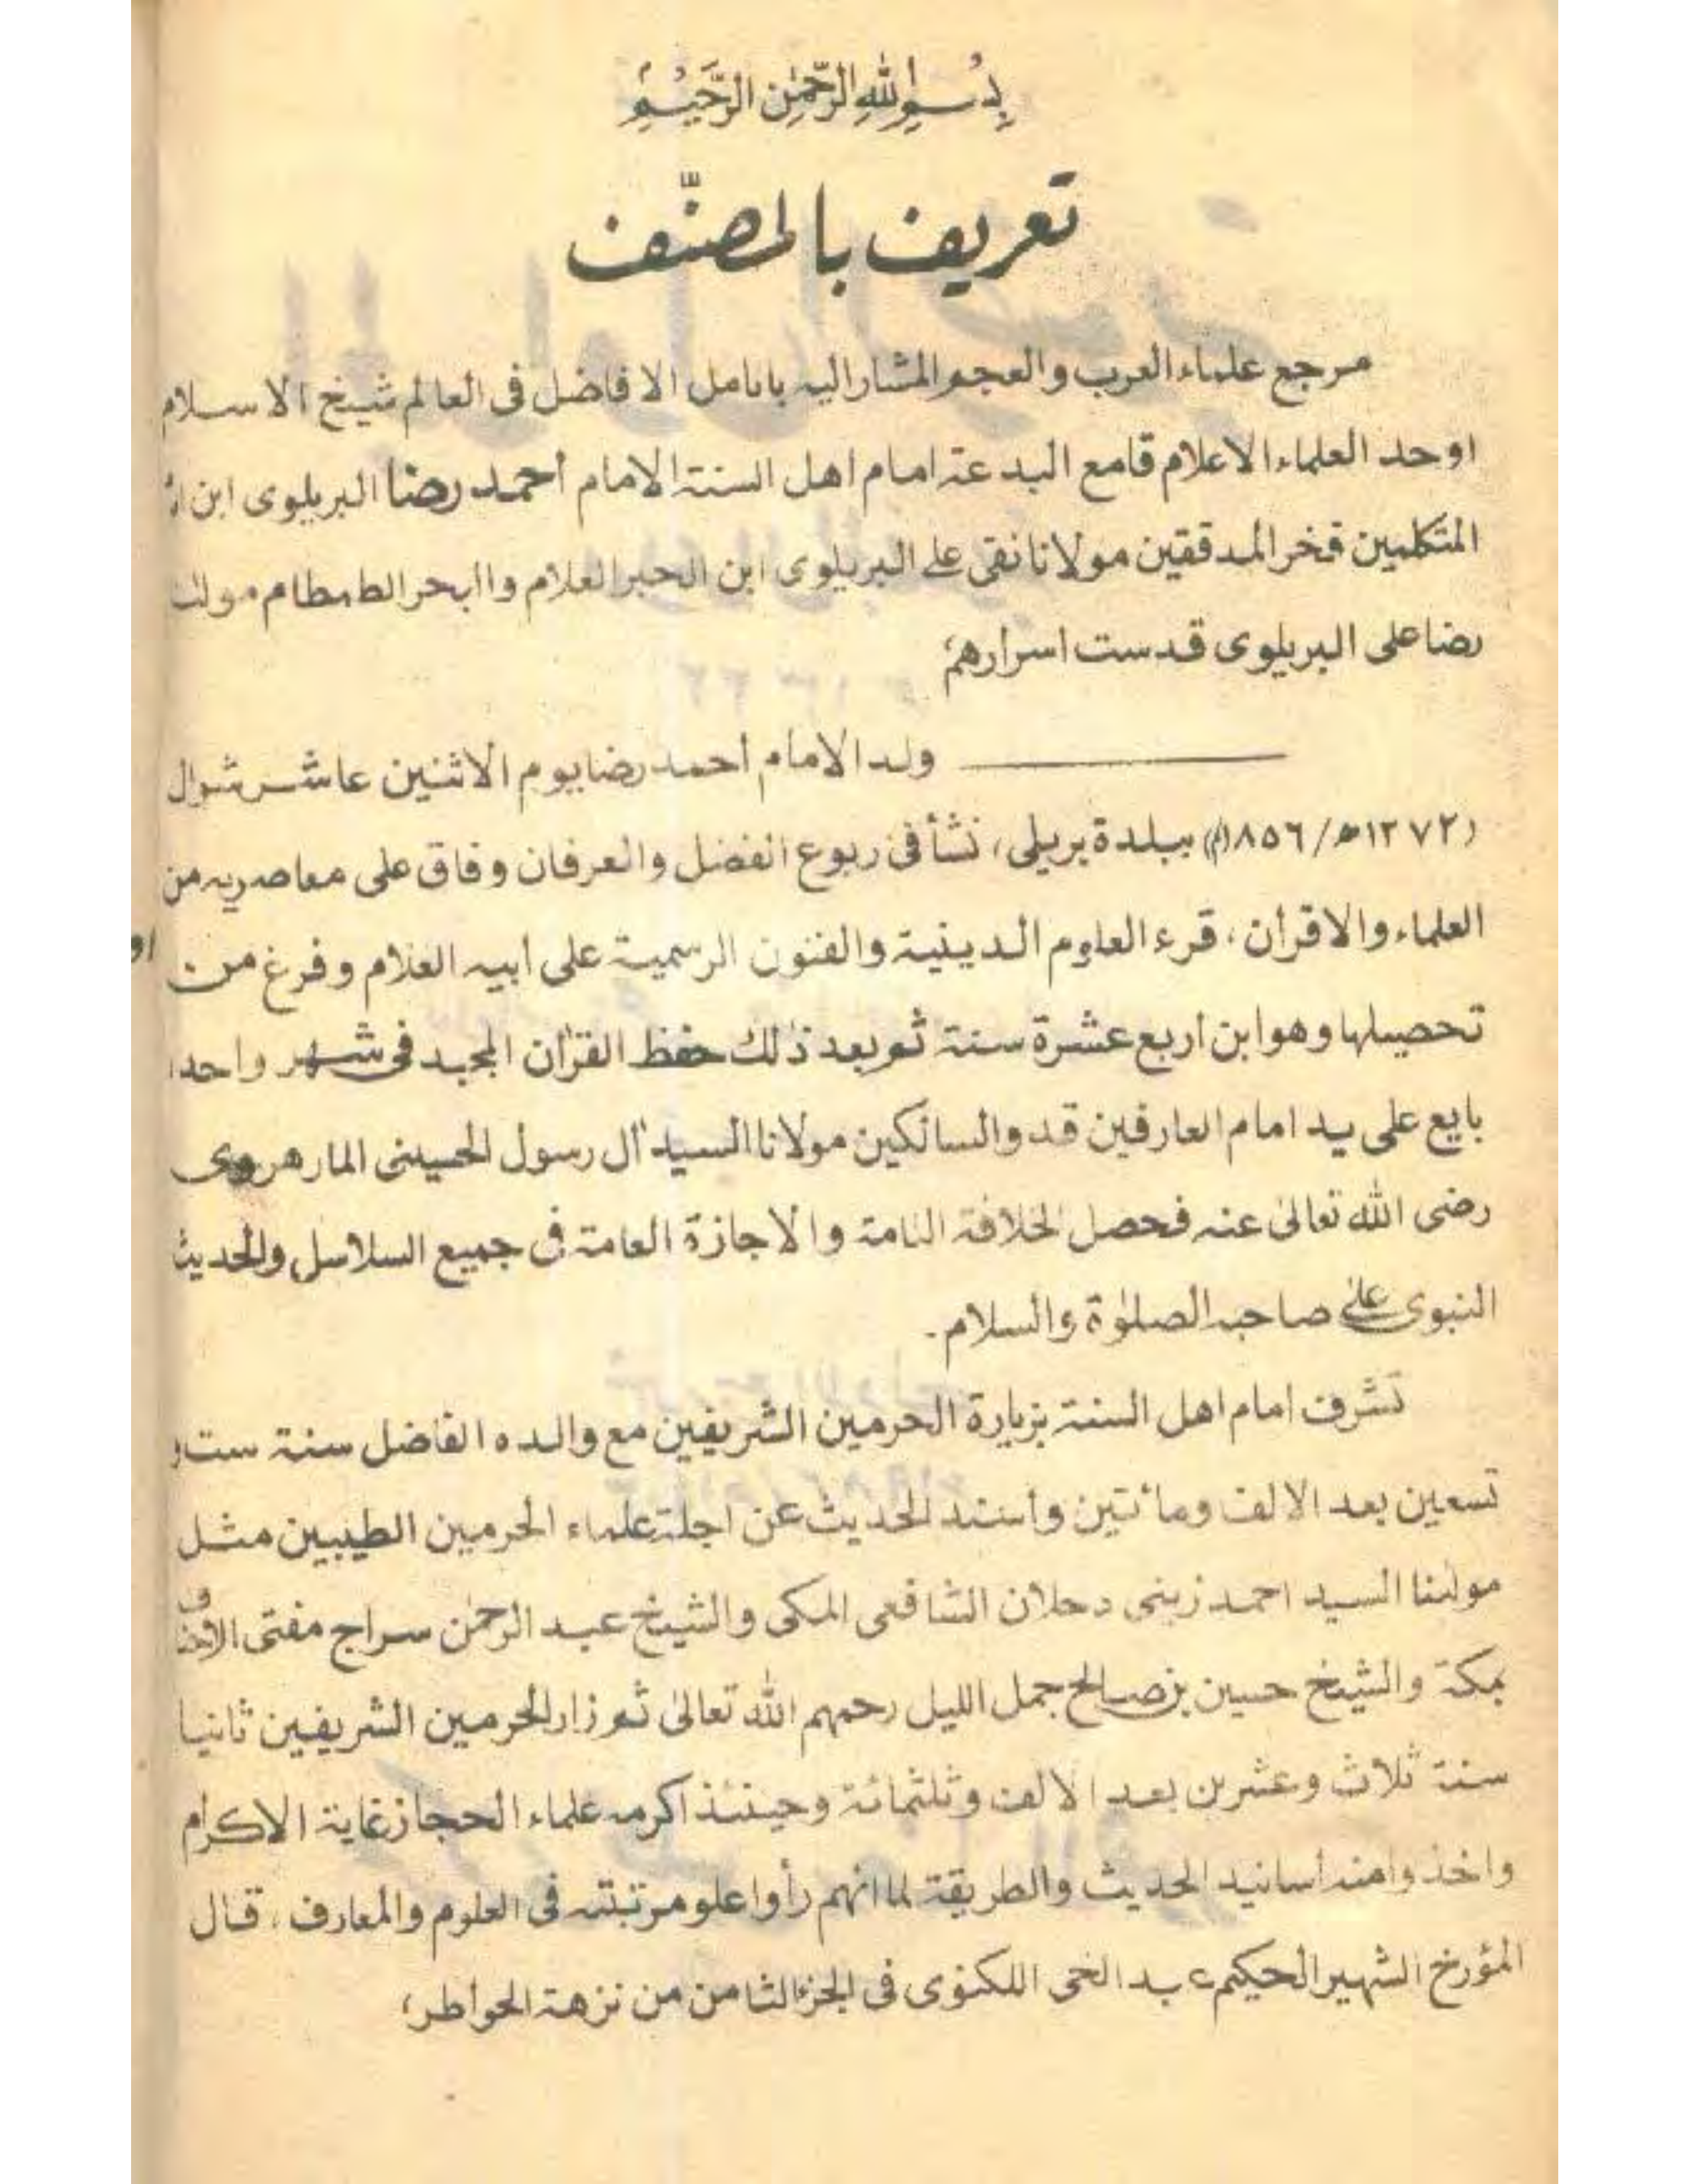 بِسْمِ اللهِ الرَّحْمٰنِ الرَّحِيْمِ
تعريف بالمصنّف
مرجع علماء العرب والعجم المشار اليه بانامل الافاضل فى العالم شيخ الاسلام
اوحد العلماء الاعلام قامع البدعة امام اهل السنة الامام احمد رضا البريلوى ابن
المتكلمين فخر المدققين مولانا نقى على البريلوى ابن الحبر العلام واابحر الطمطام
رضا على البريلوى قدست اسرارهم؛
ولد الامام احمد رضا يوم الاثنين عاشر شوال
(١٢٧٢ھ/١٨٥٦م) ببلدة بريلى، نشأ فى ربوع الفضل والعرفان وفاق على معاصريه من
العلماء والاقران، قرء العلوم الدينية والفنون الرسمية على ابيه العلام وفرغ من
تحصيلها وهو ابن اربع عشرة سنة ثم بعد ذٰلك حفظ القرٰان المجيد فى شهر واحد،
بايع على يد امام العارفين قدوالسالكين مولانا السيد آل رسول الحسينى المارهروى
رضى الله تعالىٰ عنه فحصل الخلافة التامة والاجازة العامة فى جميع السلاسل والحديث
النبوى علىٰ صاحبه الصلوٰة والسلام.
تشرف امام اهل السنة بزيارة الحرمين الشريفين مع والده الفاضل سنة ست و
تسعين بعد الالف ومائتين واسند الحديث عن اجلة علماء الحرمين الطيبين مثل
مولٰنا السيد احمد زينى دحلان الشافعى المكى والشيخ عبد الرحمٰن سراج مفتى
بمكة والشيخ حسين بن صالح جمل الليل رحمهم الله تعالىٰ ثم زار الحرمين الشريفين ثانيا
سنة ثلاث وعشرين بعد الالف وثلثمائة وحينئذ اكرمه علماء الحجاز غاية الاكرام
واخذوا منه اسانيد الحديث والطريقة لما انهم رأوا علو مرتبته فى العلوم والمعارف، قال
المؤرخ الشهير الحكيم عبد الحى اللكنوى فى الجزء الثامن من نزهة الخواطر؛